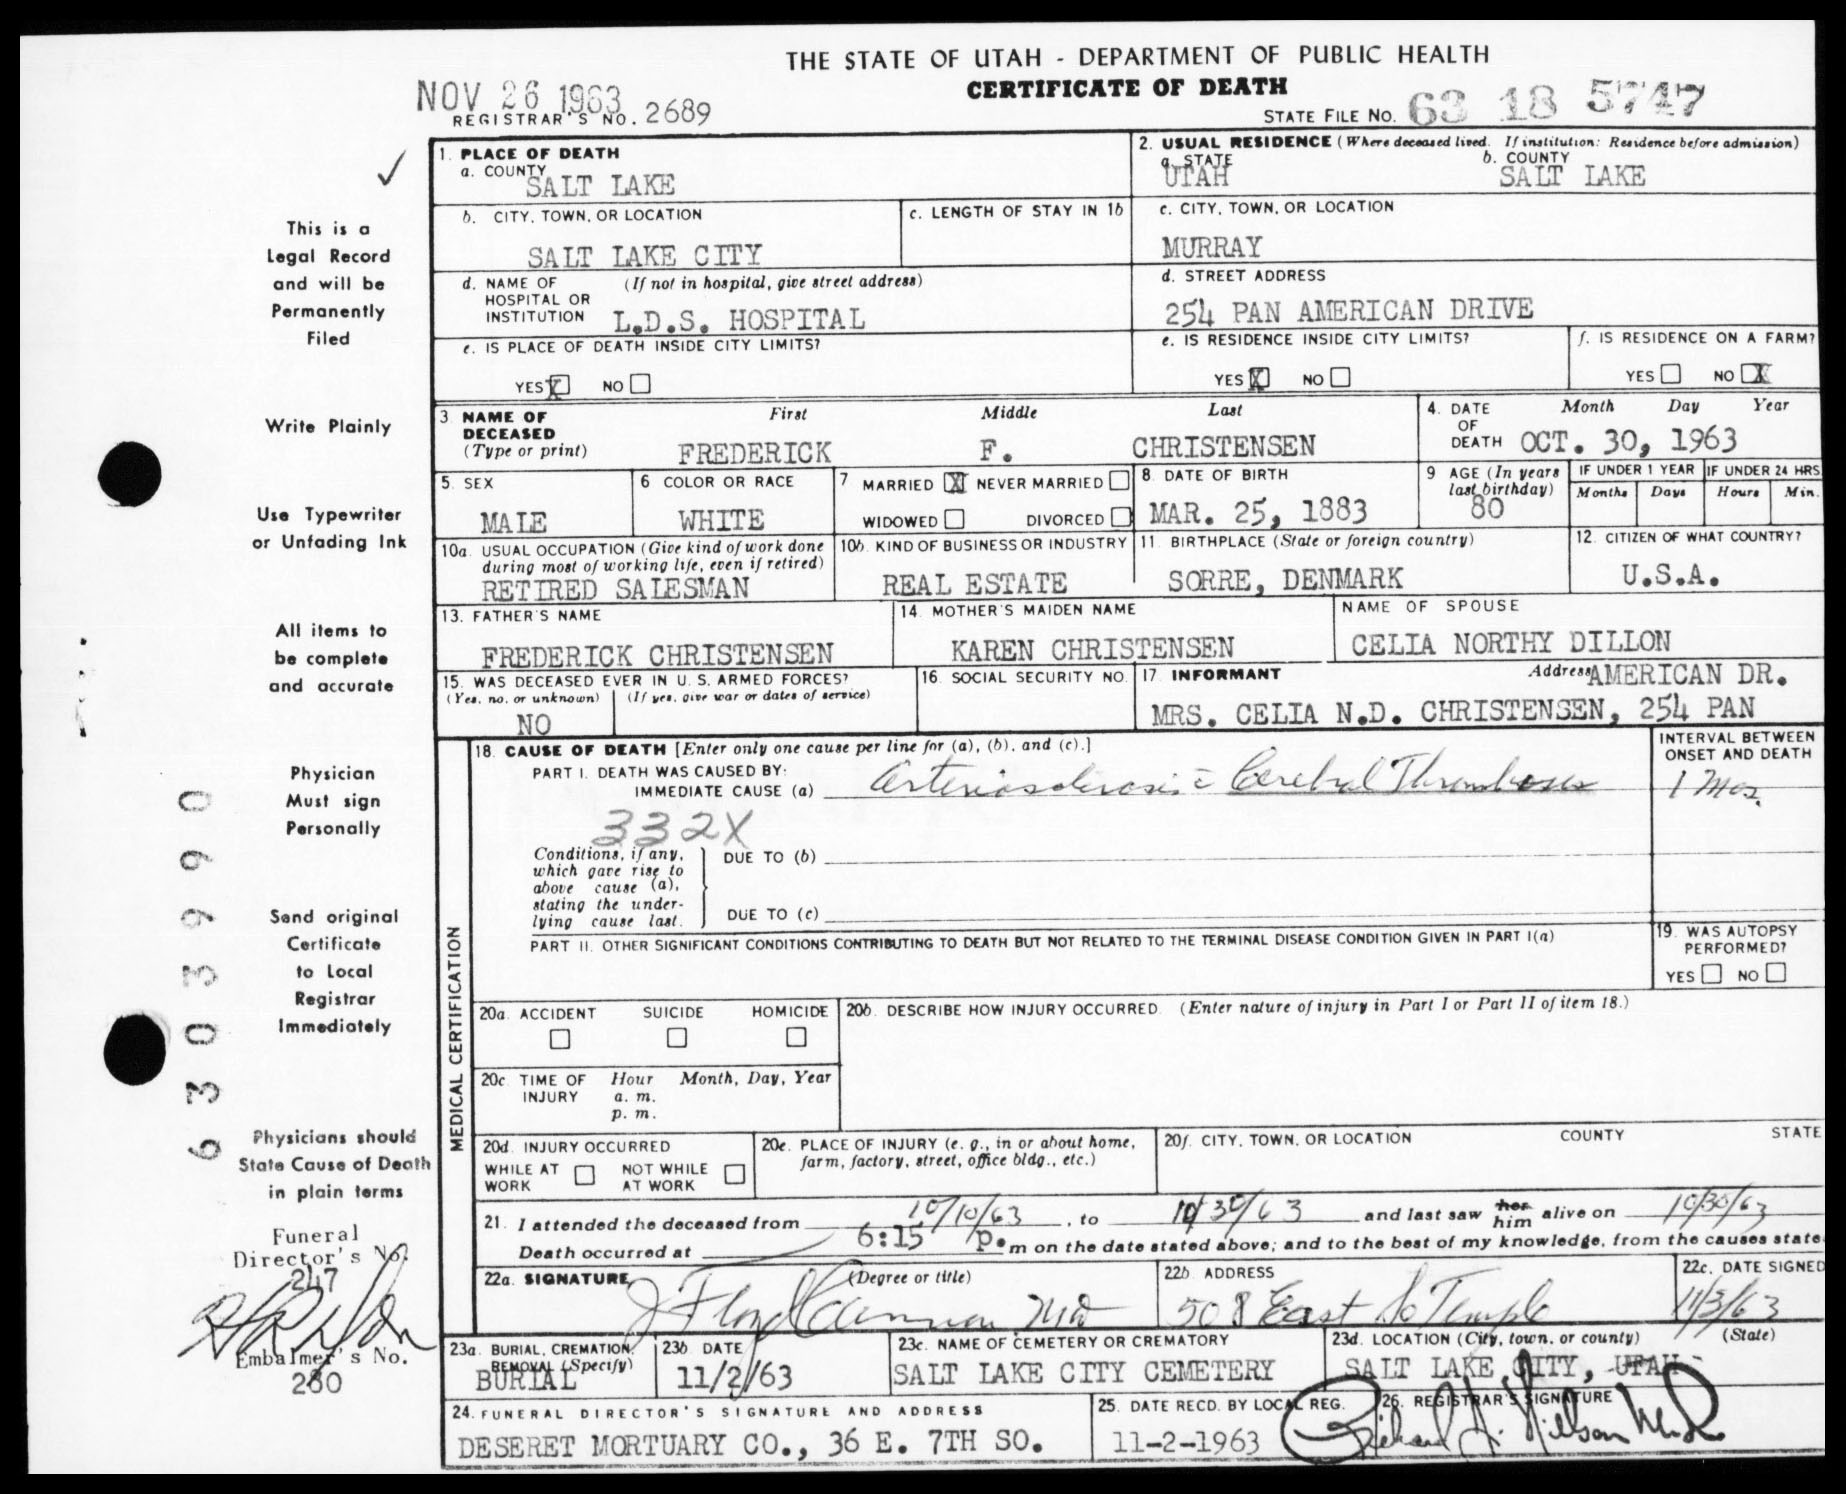 THE STATE OF UTAH - DEPARTMENT OF PUBLIC HEALTH
CERTIFICATE OF DEATH
NOV 26 1963
REGISTRAR'S NO. 2689
STATE FILE NO. 63 18 5747
1. PLACE OF DEATH
a. COUNTY
SALT LAKE
2. USUAL RESIDENCE (Where deceased lived. If institution: Residence before admission)
a. STATE b. COUNTY
UTAH SALT LAKE
b. CITY, TOWN, OR LOCATION
SALT LAKE CITY
c. LENGTH OF STAY IN 1b
c. CITY, TOWN, OR LOCATION
MURRAY
d. NAME OF HOSPITAL OR INSTITUTION (If not in hospital, give street address)
L.D.S. HOSPITAL
d. STREET ADDRESS
254 PAN AMERICAN DRIVE
e. IS PLACE OF DEATH INSIDE CITY LIMITS?
YES X NO
e. IS RESIDENCE INSIDE CITY LIMITS?
YES X NO
f. IS RESIDENCE ON A FARM?
YES NO X
3 NAME OF DECEASED (Type or print)
First Middle Last
FREDERICK F. CHRISTENSEN
4. DATE OF DEATH Month Day Year
OCT. 30, 1963
5. SEX
MALE
6 COLOR OR RACE
WHITE
7 MARRIED X NEVER MARRIED
WIDOWED DIVORCED
8. DATE OF BIRTH
MAR. 25, 1883
9 AGE (In years last birthday)
80
IF UNDER 1 YEAR
Months Days
IF UNDER 24 HRS
Hours Min.
10a. USUAL OCCUPATION (Give kind of work done during most of working life, even if retired)
RETIRED SALESMAN
10b. KIND OF BUSINESS OR INDUSTRY
REAL ESTATE
11. BIRTHPLACE (State or foreign country)
SORRE, DENMARK
12. CITIZEN OF WHAT COUNTRY?
U.S.A.
13. FATHER'S NAME
FREDERICK CHRISTENSEN
14. MOTHER'S MAIDEN NAME
KAREN CHRISTENSEN
NAME OF SPOUSE
CELIA NORTHY DILLON
15. WAS DECEASED EVER IN U. S. ARMED FORCES?
(Yes, no, or unknown) (If yes, give war or dates of service)
NO
16. SOCIAL SECURITY NO.
17. INFORMANT Address AMERICAN DR.
MRS. CELIA N.D. CHRISTENSEN, 254 PAN
MEDICAL CERTIFICATION
18. CAUSE OF DEATH [Enter only one cause per line for (a), (b), and (c).]
PART I. DEATH WAS CAUSED BY:
IMMEDIATE CAUSE (a) Arteriosclerosis c Cerebral Thrombosis
INTERVAL BETWEEN ONSET AND DEATH
1 Mos.
332X
Conditions, if any, which gave rise to above cause (a), stating the underlying cause last.
DUE TO (b)
DUE TO (c)
PART II. OTHER SIGNIFICANT CONDITIONS CONTRIBUTING TO DEATH BUT NOT RELATED TO THE TERMINAL DISEASE CONDITION GIVEN IN PART I(a)
19. WAS AUTOPSY PERFORMED?
YES NO
20a. ACCIDENT SUICIDE HOMICIDE
20b. DESCRIBE HOW INJURY OCCURRED. (Enter nature of injury in Part I or Part II of item 18.)
20c. TIME OF INJURY Hour Month, Day, Year
a. m.
p. m.
20d. INJURY OCCURRED
WHILE AT WORK NOT WHILE AT WORK
20e. PLACE OF INJURY (e. g., in or about home, farm, factory, street, office bldg., etc.)
20f. CITY, TOWN, OR LOCATION COUNTY STATE
21. I attended the deceased from 10/10/63, to 10/30/63 and last saw her him alive on 10/30/63
Death occurred at 6:15 P.m on the date stated above; and to the best of my knowledge, from the causes state
22a. SIGNATURE (Degree or title)
J Floyd Cannon MD
22b. ADDRESS
508 East So Temple
22c. DATE SIGNED
11/3/63
23a. BURIAL, CREMATION, REMOVAL (Specify)
BURIAL
23b. DATE
11/2/63
23c. NAME OF CEMETERY OR CREMATORY
SALT LAKE CITY CEMETERY
23d. LOCATION (City, town, or county) (State)
SALT LAKE CITY, UTAH
24. FUNERAL DIRECTOR'S SIGNATURE AND ADDRESS
DESERET MORTUARY CO., 36 E. 7TH SO.
25. DATE RECD. BY LOCAL REG.
11-2-1963
26. REGISTRAR'S SIGNATURE
Richard H. Nielson M.D.
This is a
Legal Record
and will be
Permanently
Filed
Write Plainly
Use Typewriter
or Unfading Ink
All items to
be complete
and accurate
Physician
Must sign
Personally
Send original
Certificate
to Local
Registrar
Immediately
Physicians should
State Cause of Death
in plain terms
Funeral
Director's No.
247
Embalmer's No.
260
6303990